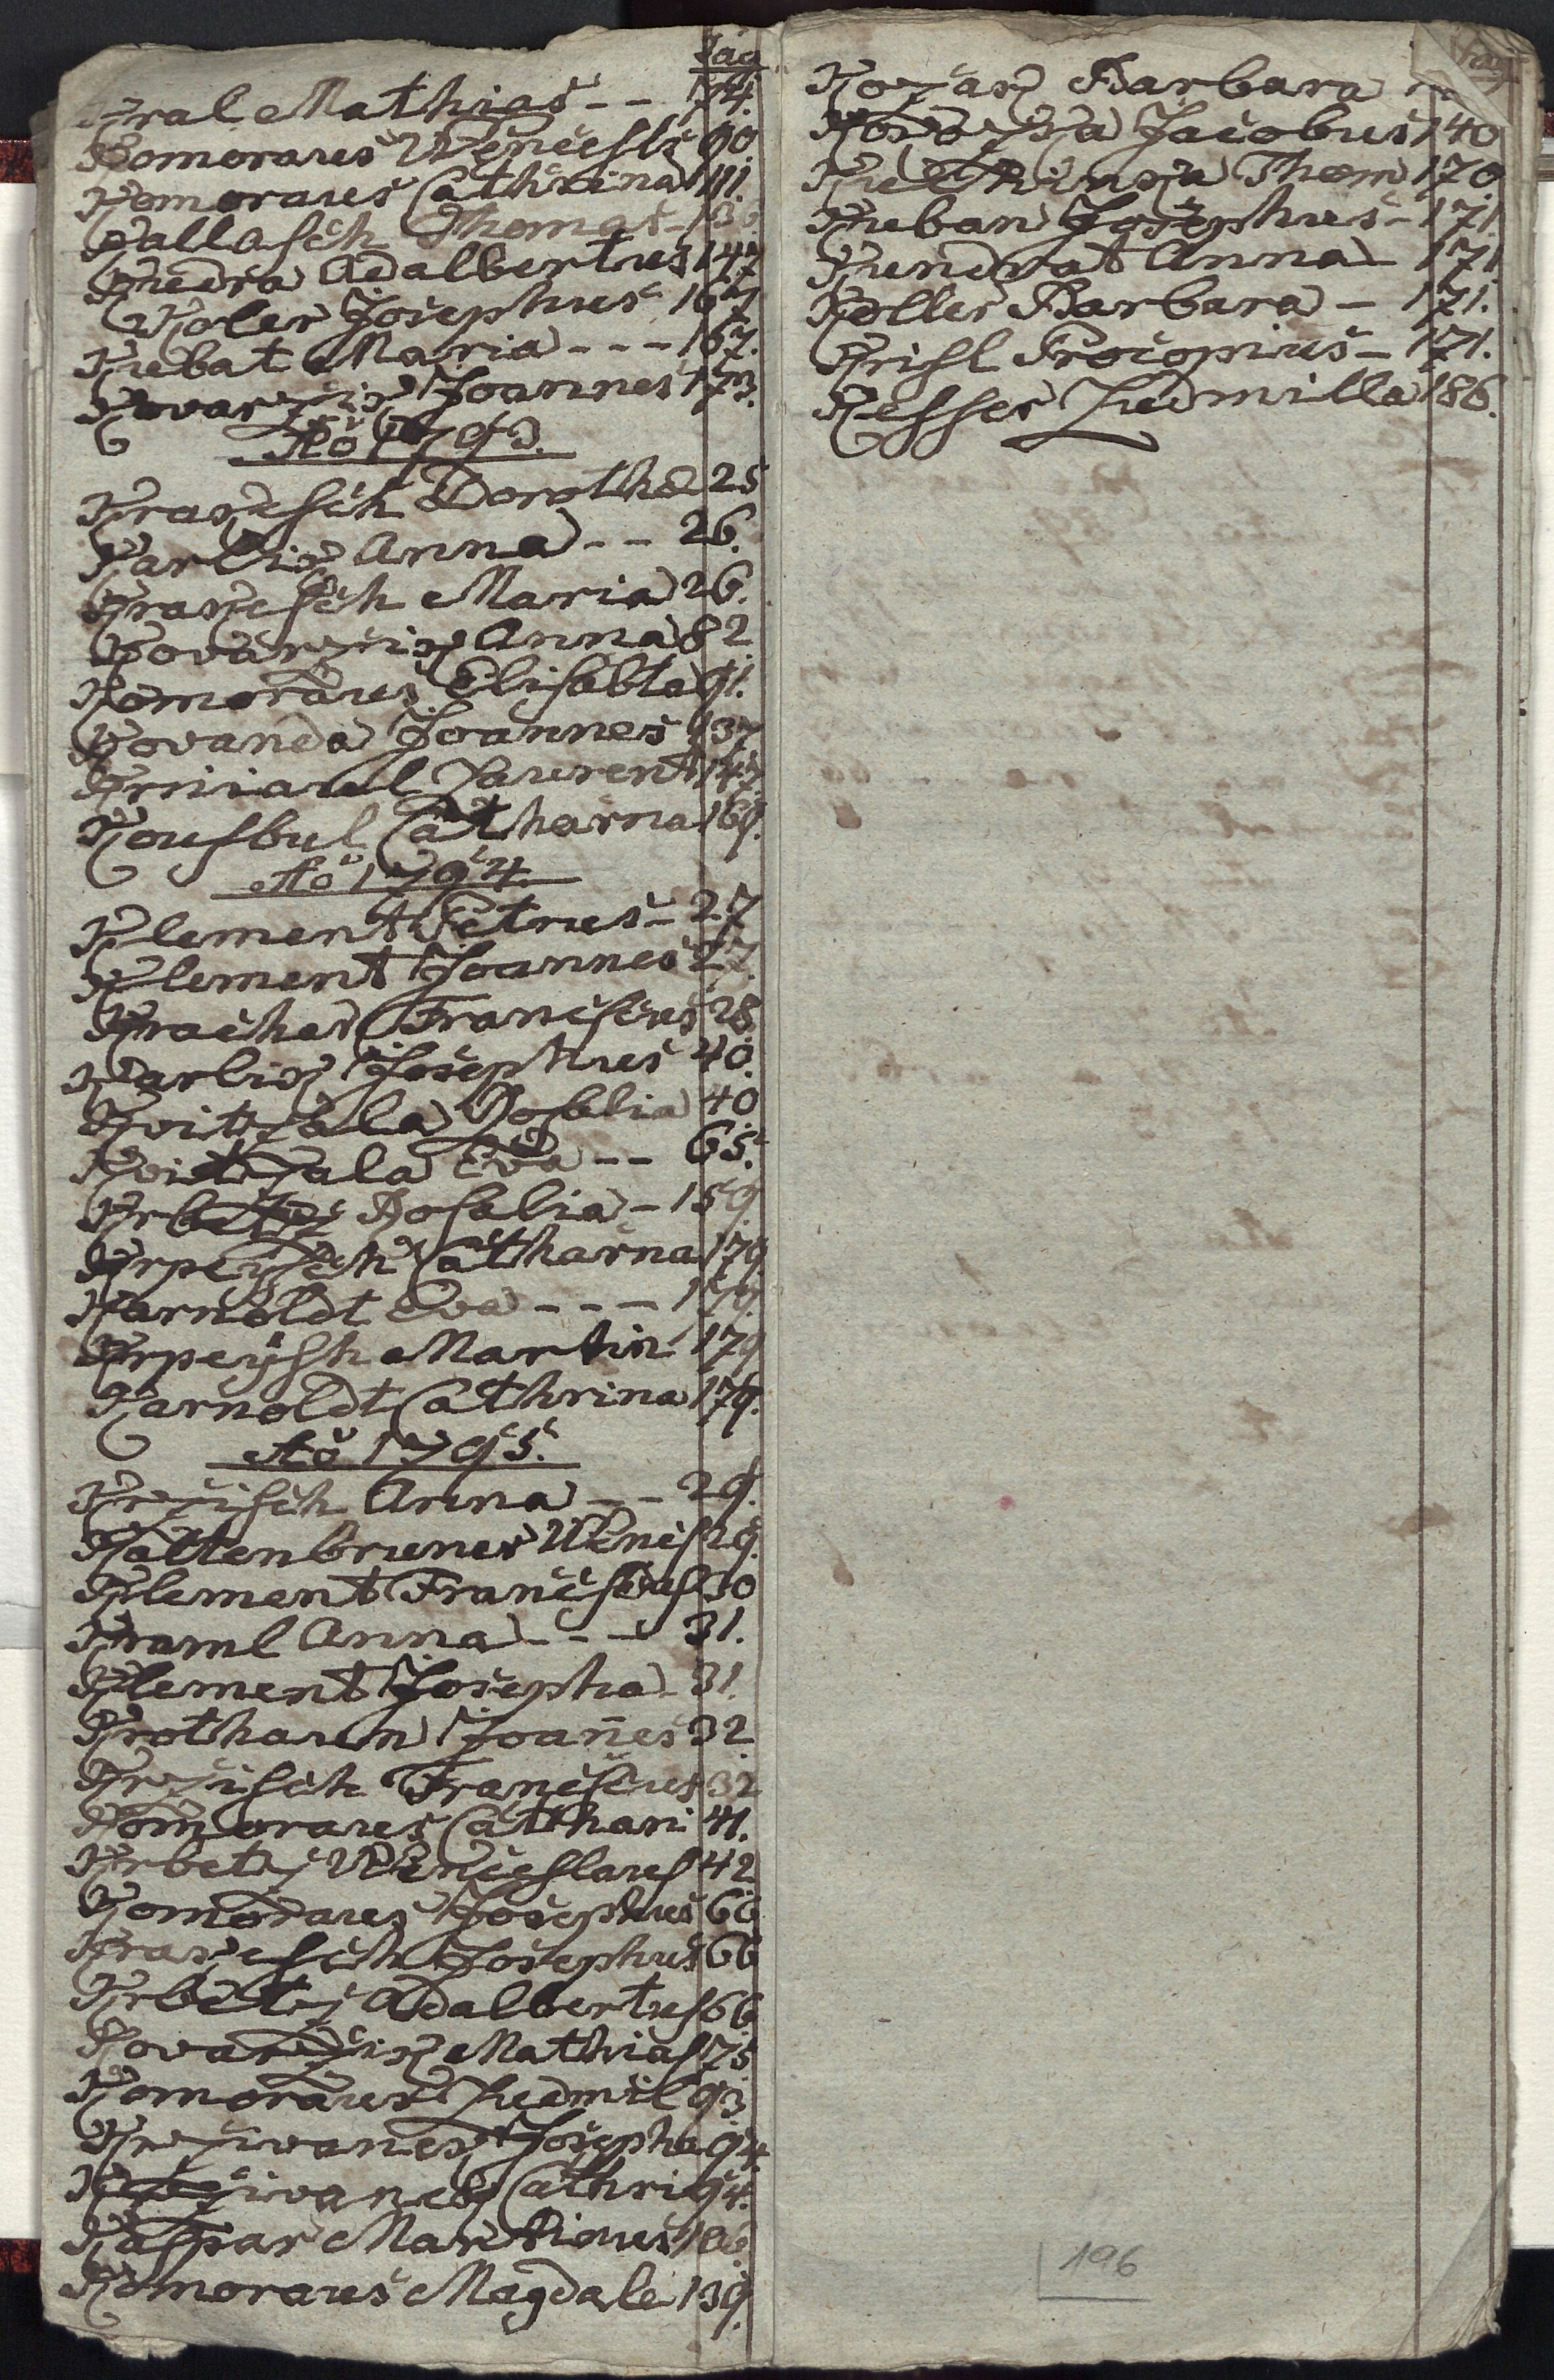 Pag
Kral Mathias -- 174.
Komoraus Wencesli 90
Komoraus Cathrina 111.
Kallasch Thomas - 136
Kudra Adalbertus 147
Koler Josephus 167
Kubat Maria --- 167.
Kovarzik Joannes 173.
Ao 1793.
Kraucsich Dorothe 25
Karlik Anna -- 26.
Kraucsich Maria 26.
Kovarzik Anna 82
Komoraus Elisabta 91.
Kovanda Joannes 137
Laurent 147
Kousbul Catharna 169.
Ao 1794.
Klement Petrus - 27
Klement Joannes 27.
Kracher Franciscus 28
Karlik Josephus 40.
Kvitzala Rosalia 40
Kvitzala Eva -- 65.
Krbetz Rosalia - 159
Krpeysch Catharna 179
Karnoldt Eva --- 179.
Krpeysh Martin 179
Karnoldt Cathrina 179.
Ao 1795.
Krzisch Anna -- 29.
Kaltenbruner Wences 29.
Klement Francisens 30
Kraml Anna --- 31.
Klement Josepha - 31.
Krothaun Joanes 32
Krzisch Franciscus 32
Komoraus Catthari 41.
Krbetz Wenceslaus 42
Komoraus Josephus 66
Kraucsich Josephus 66
Krbetz Adalbertus 66
Kovarzik Mathias 75
Komoraus Ludmil 93
Krzivanek Josepha 94
Krzivanek Cathri 94.
Kaspar Martinus 106.
Komoraus Magdale 139.
Pag
Kozak Barbara
Jacobus 140
Thom 170
Kuban Josephus - 171.
Kundrat Anna - 171
Koller Barbara - 171.
Krisl Procopius - 171.
Kesser Ludmilla 186.
196